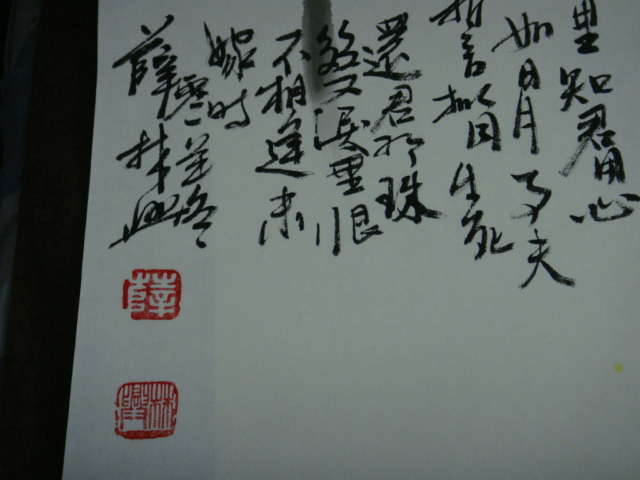 里知君用心
如日月事夫
誓拟同生死
還君明珠
雙淚垂恨
不相逢未
嫁時
薛林興
薛